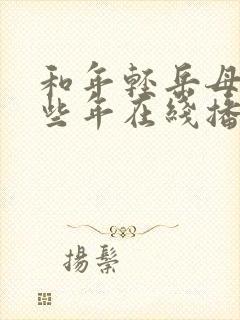 和年轻岳母
些年在线播
扬鬃